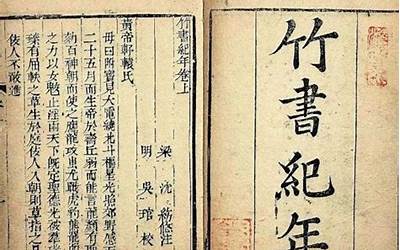 竹書紀年
竹書紀年卷上
梁 沈約附注
明 吳琯校
黃帝軒轅氏
母曰附寶見大電繞北斗樞星光照郊野感
二十五月而生帝於壽丘弱而能言龍顏有
劾百神朝而使之應龍攻蚩尤戰虎豹熊
之力以女魃止淫雨天下既定聖德光被羣
臻有屈軼之草生於庭佞人入朝則草指之
佞人不敢進